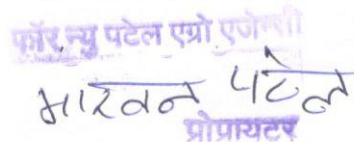 फॉर न्यु पटेल एग्रो एजेन्सी
माखन पटेल
प्रोप्रायटर